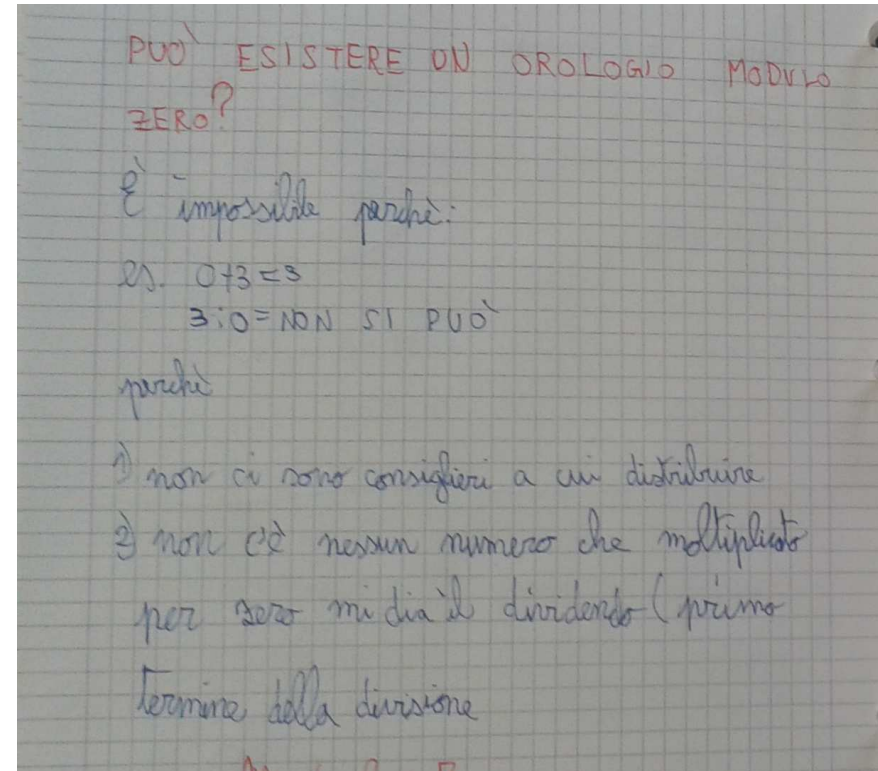 PUÒ ESISTERE UN OROLOGIO MODULO
ZERO?
È impossibile perchè:
es. 0+3=3
3:0= NON SI PUÒ
perchè
1) non ci sono consiglieri a cui distribuire
2) non c'è nessun numero che moltiplicato
per zero mi dia il dividendo (primo
termine della divisione